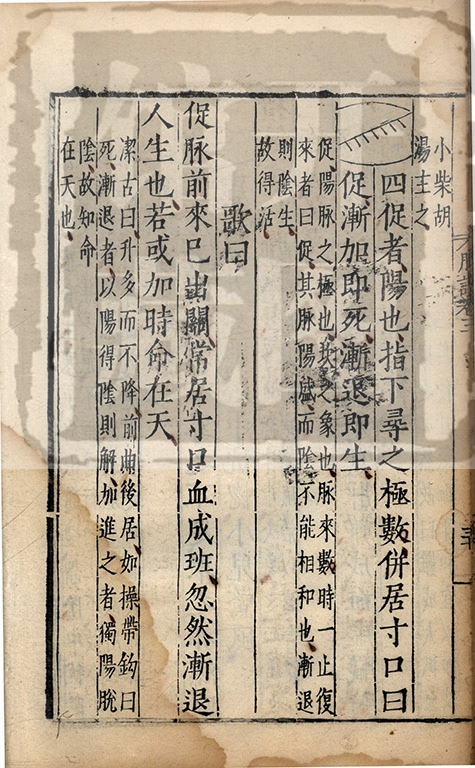 小柴胡
湯主之
四促者陽也指下尋之極數併居寸口曰
促漸加即死漸退即生
促陽脉之極也
之象也脉來數時一止復
來者曰促其脉陽盛而陰不能相和也漸退
則陰生
故得活
歌曰
促脉前來已出關常居寸口血成班忽然漸退
人生也若或加時命在天
潔古曰升多而不降前曲後居如操帶鈎曰
死漸退者以陽得陰則解加進之者獨陽脫
陰故知命
在天也